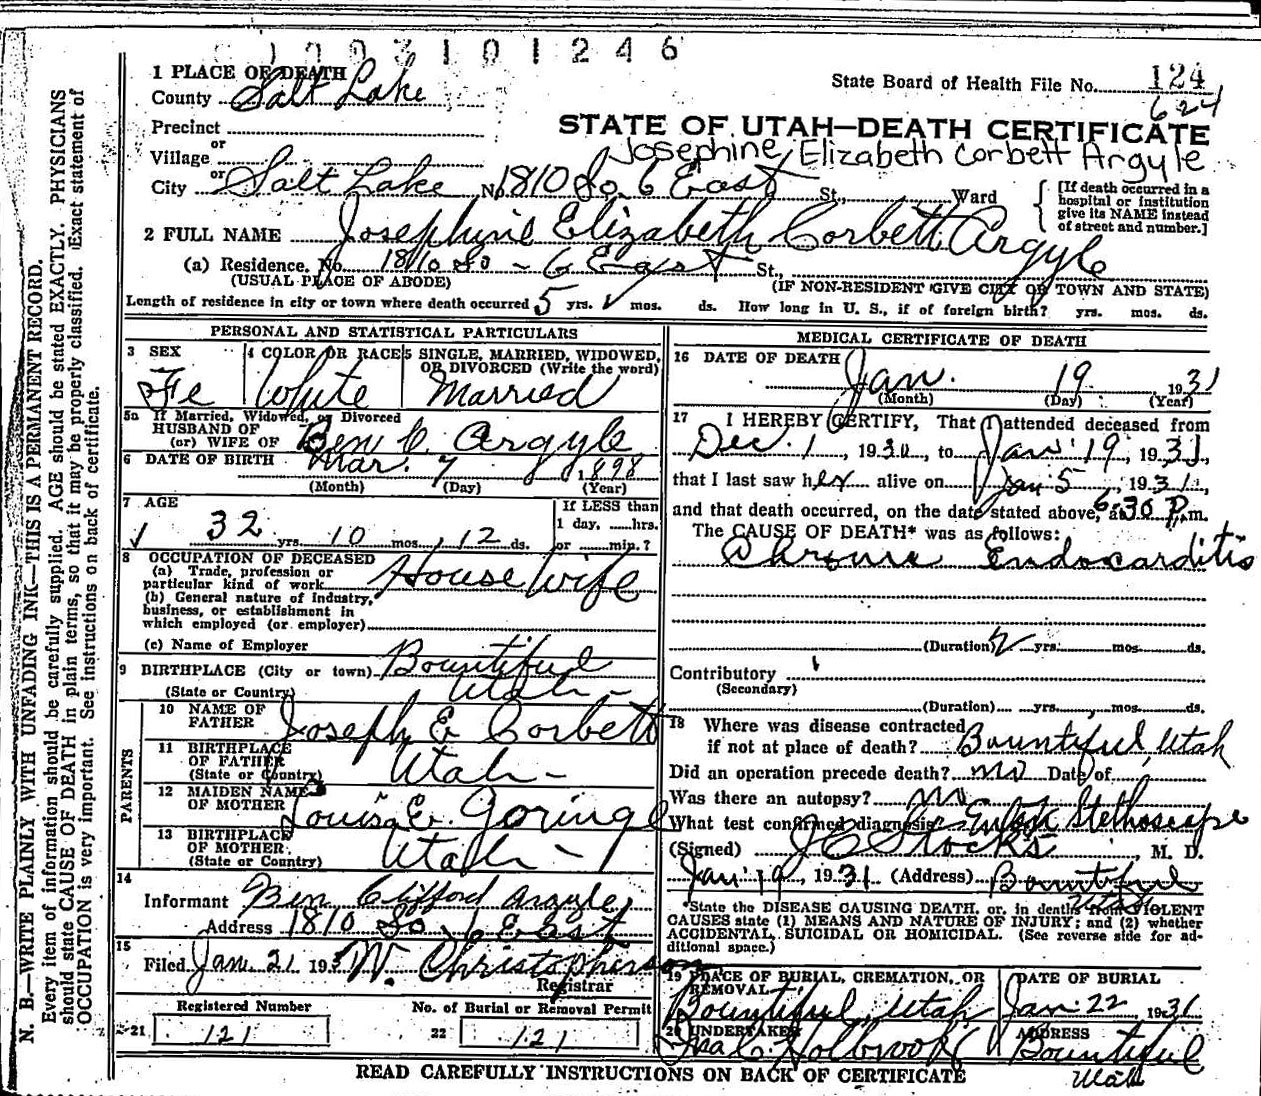 1 0 0 3 1 0 1 2 4 6
1 PLACE OF DEATH
County Salt Lake
State Board of Health File No. 124
624
Precinct
or
Village
or
City Salt Lake No. 1810 So. 6 East St., Ward
STATE OF UTAH—DEATH CERTIFICATE
Josephine Elizabeth Corbett Argyle
[If death occurred in a
hospital or institution
give its NAME instead
of street and number.]
2 FULL NAME Josephine Elizabeth Corbett Argyle
(a) Residence. No. 1810 So - 6 East St.,
(USUAL PLACE OF ABODE) (IF NON-RESIDENT GIVE CITY OR TOWN AND STATE)
Length of residence in city or town where death occurred 5 yrs. mos. ds. How long in U. S., if of foreign birth? yrs. mos. ds.
PERSONAL AND STATISTICAL PARTICULARS
3 SEX
Fe
4 COLOR OR RACE
White
5 SINGLE, MARRIED, WIDOWED,
OR DIVORCED (Write the word)
Married
5a If Married, Widowed, or Divorced
HUSBAND OF
(or) WIFE OF Ben C. Argyle
6 DATE OF BIRTH Mar. 7 1898
(Month) (Day) (Year)
7 AGE
32 yrs. 10 mos. 12 ds.
If LESS than
1 day, ......hrs.
or ......min.?
8 OCCUPATION OF DECEASED
(a) Trade, profession or
particular kind of work House wife
(b) General nature of industry,
business, or establishment in
which employed (or employer)
(c) Name of Employer
9 BIRTHPLACE (City or town) Bountiful
(State or Country) Utah -
PARENTS
10 NAME OF
FATHER Joseph E Corbett
11 BIRTHPLACE
OF FATHER
(State or Country) Utah -
12 MAIDEN NAME
OF MOTHER Louisa E. Goringe
13 BIRTHPLACE
OF MOTHER
(State or Country) Utah -
14
Informant Ben Clifford Argyle
Address 1810 So 6 East
15
Filed Jan. 21 1931 W. Christopherson
Registrar
Registered Number No. of Burial or Removal Permit
21 121 22 121
MEDICAL CERTIFICATE OF DEATH
16 DATE OF DEATH
Jan. 19 1931
(Month) (Day) (Year)
17 I HEREBY CERTIFY, That I attended deceased from
Dec. 1, 1930, to Jan 19, 1931,
that I last saw her alive on Jan 5, 1931,
and that death occurred, on the date stated above, at 6:30 P.m.
The CAUSE OF DEATH* was as follows:
Chronic Endocarditis
(Duration) yrs. mos. ds.
Contributory
(Secondary)
(Duration) yrs. mos. ds.
18 Where was disease contracted
if not at place of death? Bountiful, Utah
Did an operation precede death? no Date of
Was there an autopsy? no
What test confirmed diagnosis? Stethoscope
(Signed) J C Stocks, M. D.
Jan 19, 1931 (Address) Bountiful
Utah
*State the DISEASE CAUSING DEATH, or, in deaths from VIOLENT
CAUSES state (1) MEANS AND NATURE OF INJURY; and (2) whether
ACCIDENTAL, SUICIDAL OR HOMICIDAL. (See reverse side for ad-
ditional space.)
19 PLACE OF BURIAL, CREMATION, OR
REMOVAL
Bountiful, Utah
DATE OF BURIAL
Jan. 22 1931
20 UNDERTAKER
Ira C. Holbrook
ADDRESS
Bountiful
Utah
READ CAREFULLY INSTRUCTIONS ON BACK OF CERTIFICATE
N. B.—WRITE PLAINLY WITH UNFADING INK—THIS IS A PERMANENT RECORD.
Every item of information should be carefully supplied. AGE should be stated EXACTLY. PHYSICIANS
should state CAUSE OF DEATH in plain terms, so that it may be properly classified. Exact statement of
OCCUPATION is very important. See instructions on back of certificate.